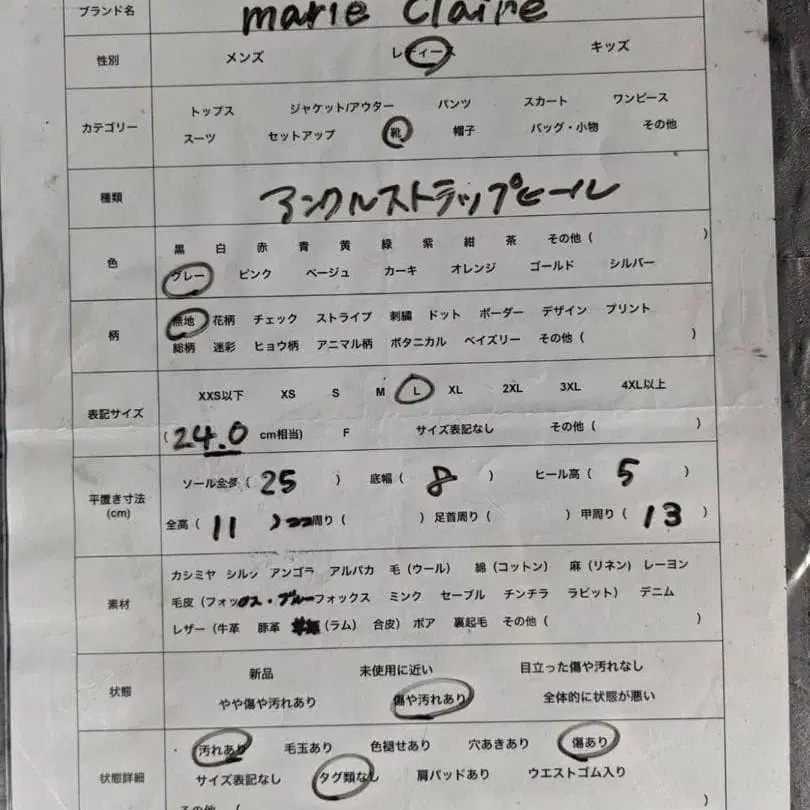 ブランド名 marie claire
性別 メンズ レディース キッズ
カテゴリー
トップス ジャケット/アウター パンツ スカート ワンピース
スーツ セットアップ 靴 帽子 バッグ・小物 その他
種類 アンクルストラップヒール
色
黒 白 赤 青 黄 緑 紫 紺 茶 その他 ( )
グレー ピンク ベージュ カーキ オレンジ ゴールド シルバー
柄
無地 花柄 チェック ストライプ 刺繍 ドット ボーダー デザイン プリント
総柄 迷彩 ヒョウ柄 アニマル柄 ボタニカル ペイズリー その他 ( )
表記サイズ
XXS以下 XS S M L XL 2XL 3XL 4XL以上
( 24.0 cm相当) F サイズ表記なし その他 (
平置き寸法
(cm)
ソール全長 ( 25 ) 底幅 ( 8 ) ヒール高 ( 5 )
全高 ( 11 ) 周り ( ) 足首周り ( ) 甲周り ( 13 )
素材
カシミヤ シルク アンゴラ アルパカ 毛 (ウール) 綿 (コットン) 麻 (リネン) レーヨン
毛皮 (フォックス・ブルーフォックス ミンク セーブル チンチラ ラビット) デニム
レザー (牛革 豚革 (ラム) 合皮) ボア 裏起毛 その他 ( )
状態
新品 未使用に近い 目立った傷や汚れなし
やや傷や汚れあり 傷や汚れあり 全体的に状態が悪い
状態詳細
汚れあり 毛玉あり 色褪せあり 穴あきあり 傷あり
サイズ表記なし タグ類なし 肩パッドあり ウエストゴム入り
その他 ( )